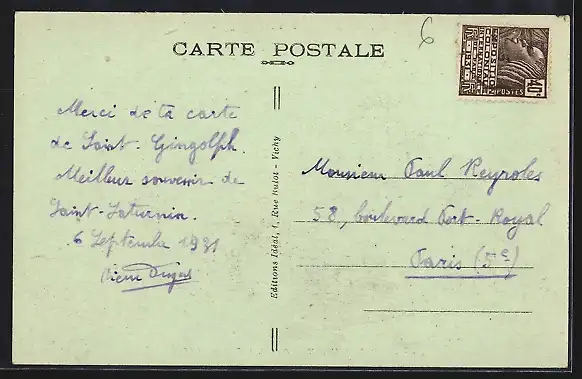 6
CARTE POSTALE
EXPOSITION COLONIALE INTERNATIONALE
PARIS 1931
POSTES
40c
Merci de ta carte
de Saint-Gingolph.
Meilleur souvenir de
Saint-Saturnin.
6 Septembre 1931
Pierre
Editions Idéal, 1, Rue Rulot - Vichy
Monsieur Paul Reyroles
58, boulevard Port-Royal
Paris (5e)